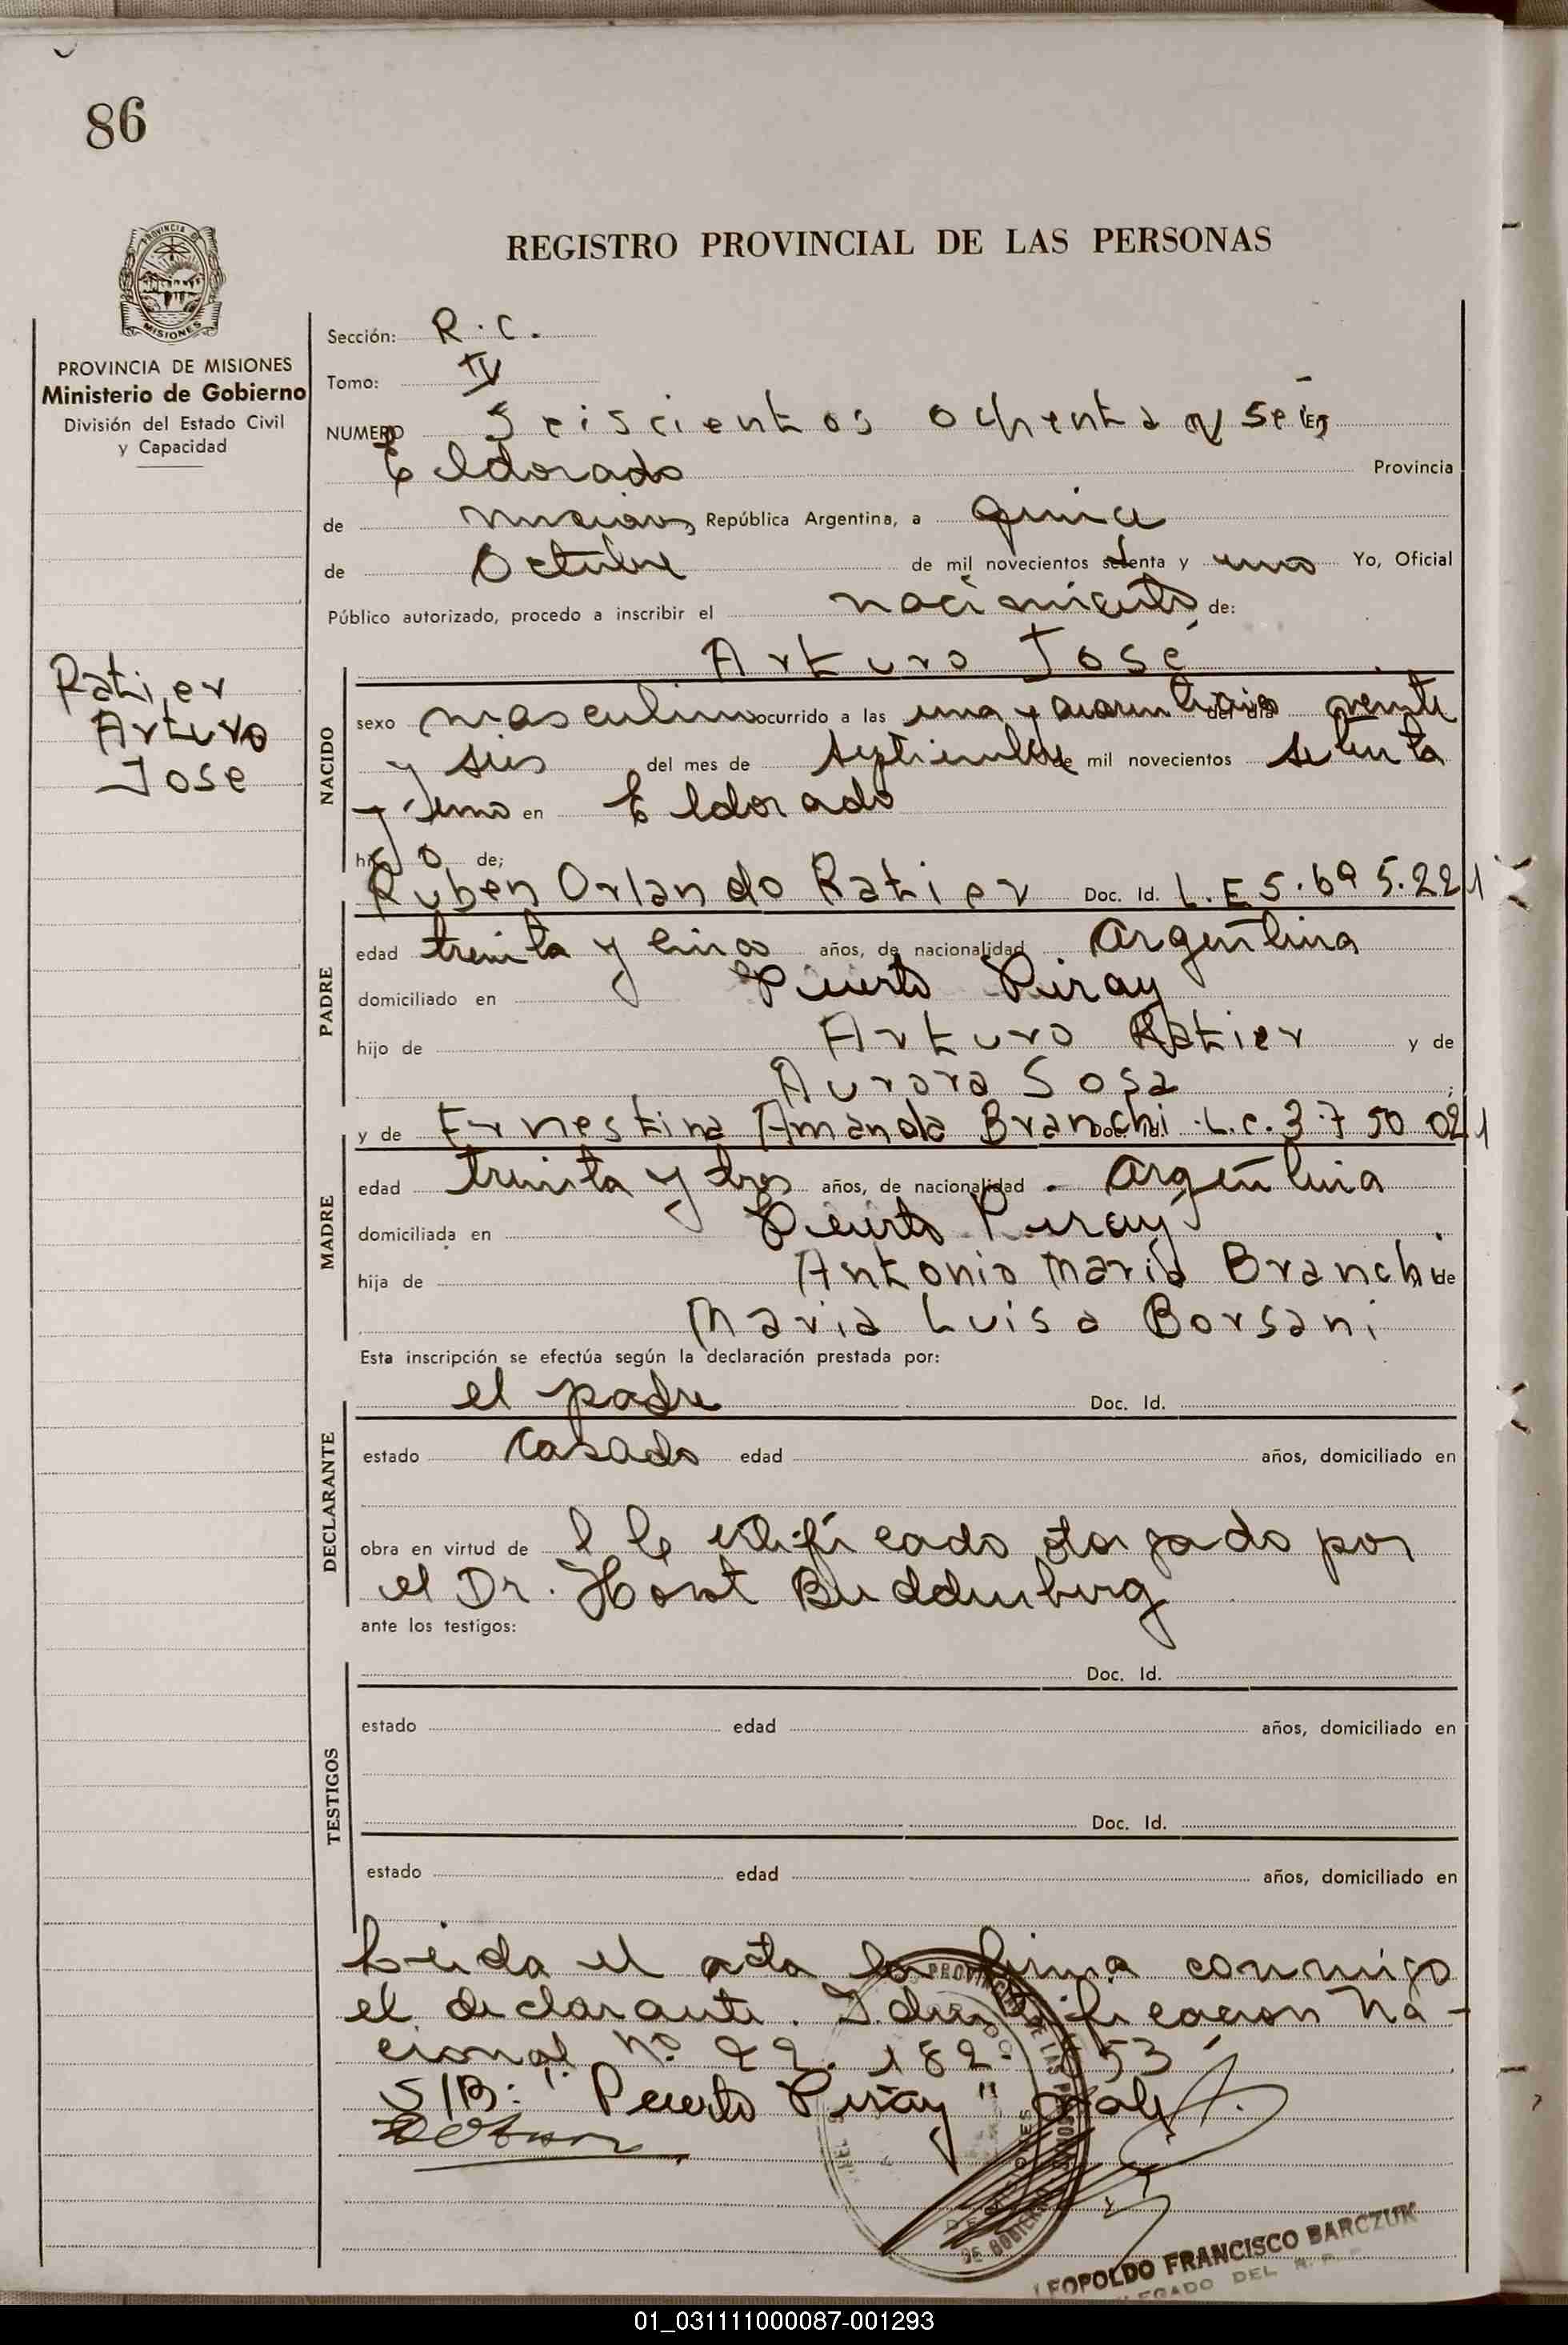 86
PROVINCIA DE
MISIONES
REGISTRO PROVINCIAL DE LAS PERSONAS
PROVINCIA DE MISIONES
Ministerio de Gobierno
División del Estado Civil
y Capacidad
Ratier
Arturo
Jose
Sección: R.C.
Tomo: IV
NUMERO Seiscientos ochenta y seis
Eldorado Provincia
de Misiones República Argentina, a quince
de Octubre de mil novecientos setenta y uno Yo, Oficial
Público autorizado, procedo a inscribir el nacimiento de:
Arturo José
NACIDO
sexo masculino ocurrido a las una y cuarenta del día veinte
y seis del mes de septiembre de mil novecientos setenta
y uno en Eldorado
hijo de;
Ruben Orlando Ratier Doc. Id. L.E 5.695.221
PADRE
edad treinta y cinco años, de nacionalidad argentina
domiciliado en Puerto Piray
hijo de Arturo Ratier y de
Aurora Sosa ;
y de Ernestina Amanda Branchi Doc. Id. L.C. 3.750 021
MADRE
edad treinta y tres años, de nacionalidad argentina
domiciliada en Puerto Piray
hija de Antonio Maria Branchi de
Maria Luisa Borsani
Esta inscripción se efectúa según la declaración prestada por:
el padre Doc. Id.
DECLARANTE
estado casado edad años, domiciliado en
obra en virtud de l certificado otorgado por
el Dr. Horst Buddenberg
ante los testigos:
TESTIGOS
Doc. Id.
estado edad años, domiciliado en
Doc. Id.
estado edad años, domiciliado en
Leida el acta la firma conmigo
el declarante. Identificacion Na-
cional nº 22.182.
S/B: "Puerto Piray" vale
LEOPOLDO FRANCISCO BARCZUK
DELEGADO DEL R.
01_031111000087-001293